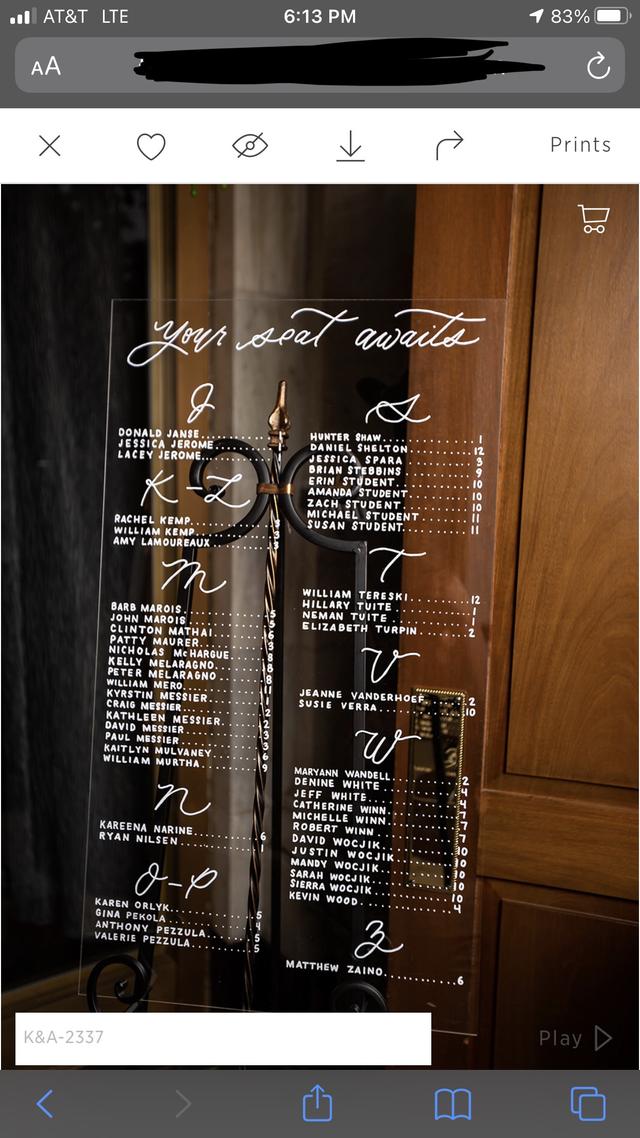 AT&T LTE
6:13 PM
83%
AA
Prints
your seat awaits
J
DONALD JANSE
JESSICA JEROME
LACEY JEROME
K-L
RACHEL KEMP
WILLIAM KEMP........3
AMY LAMOUREAUX........3
M
BARB MAROIS........5
JOHN MAROIS........5
CLINTON MATHAI........6
PATTY MAURER........3
NICHOLAS McHARGUE........8
KELLY MELARAGNO........8
PETER MELARAGNO........8
WILLIAM MERO........11
KYRSTIN MESSIER........1
CRAIG MESSIER........2
KATHLEEN MESSIER........2
DAVID MESSIER
PAUL MESSIER........3
KAITLYN MULVANEY........6
WILLIAM MURTHA........9
N
KAREENA NARINE........6
RYAN NILSEN........1
O-P
KAREN ORLYK........5
GINA PEKOLA........4
ANTHONY PEZZULA........5
VALERIE PEZZULA........5
S
HUNTER SHAW........1
DANIEL SHELTON........12
JESSICA SPARA........3
BRIAN STEBBINS........9
ERIN STUDENT........10
AMANDA STUDENT........10
ZACH STUDENT........10
MICHAEL STUDENT........11
SUSAN STUDENT........11
T
WILLIAM TERESKI........12
HILLARY TUITE........1
NEMAN TUITE........1
ELIZABETH TURPIN........2
V
JEANNE VANDERHOEF........2
SUSIE VERRA........10
W
MARYANN WANDELL........2
DENINE WHITE........4
JEFF WHITE........4
CATHERINE WINN........7
MICHELLE WINN........7
ROBERT WINN........7
DAVID WOCJIK........10
JUSTIN WOCJIK........10
MANDY WOCJIK........10
SARAH WOCJIK........10
SIERRA WOCJIK........10
KEVIN WOOD........4
Z
MATTHEW ZAINO........6
K&A-2337
Play